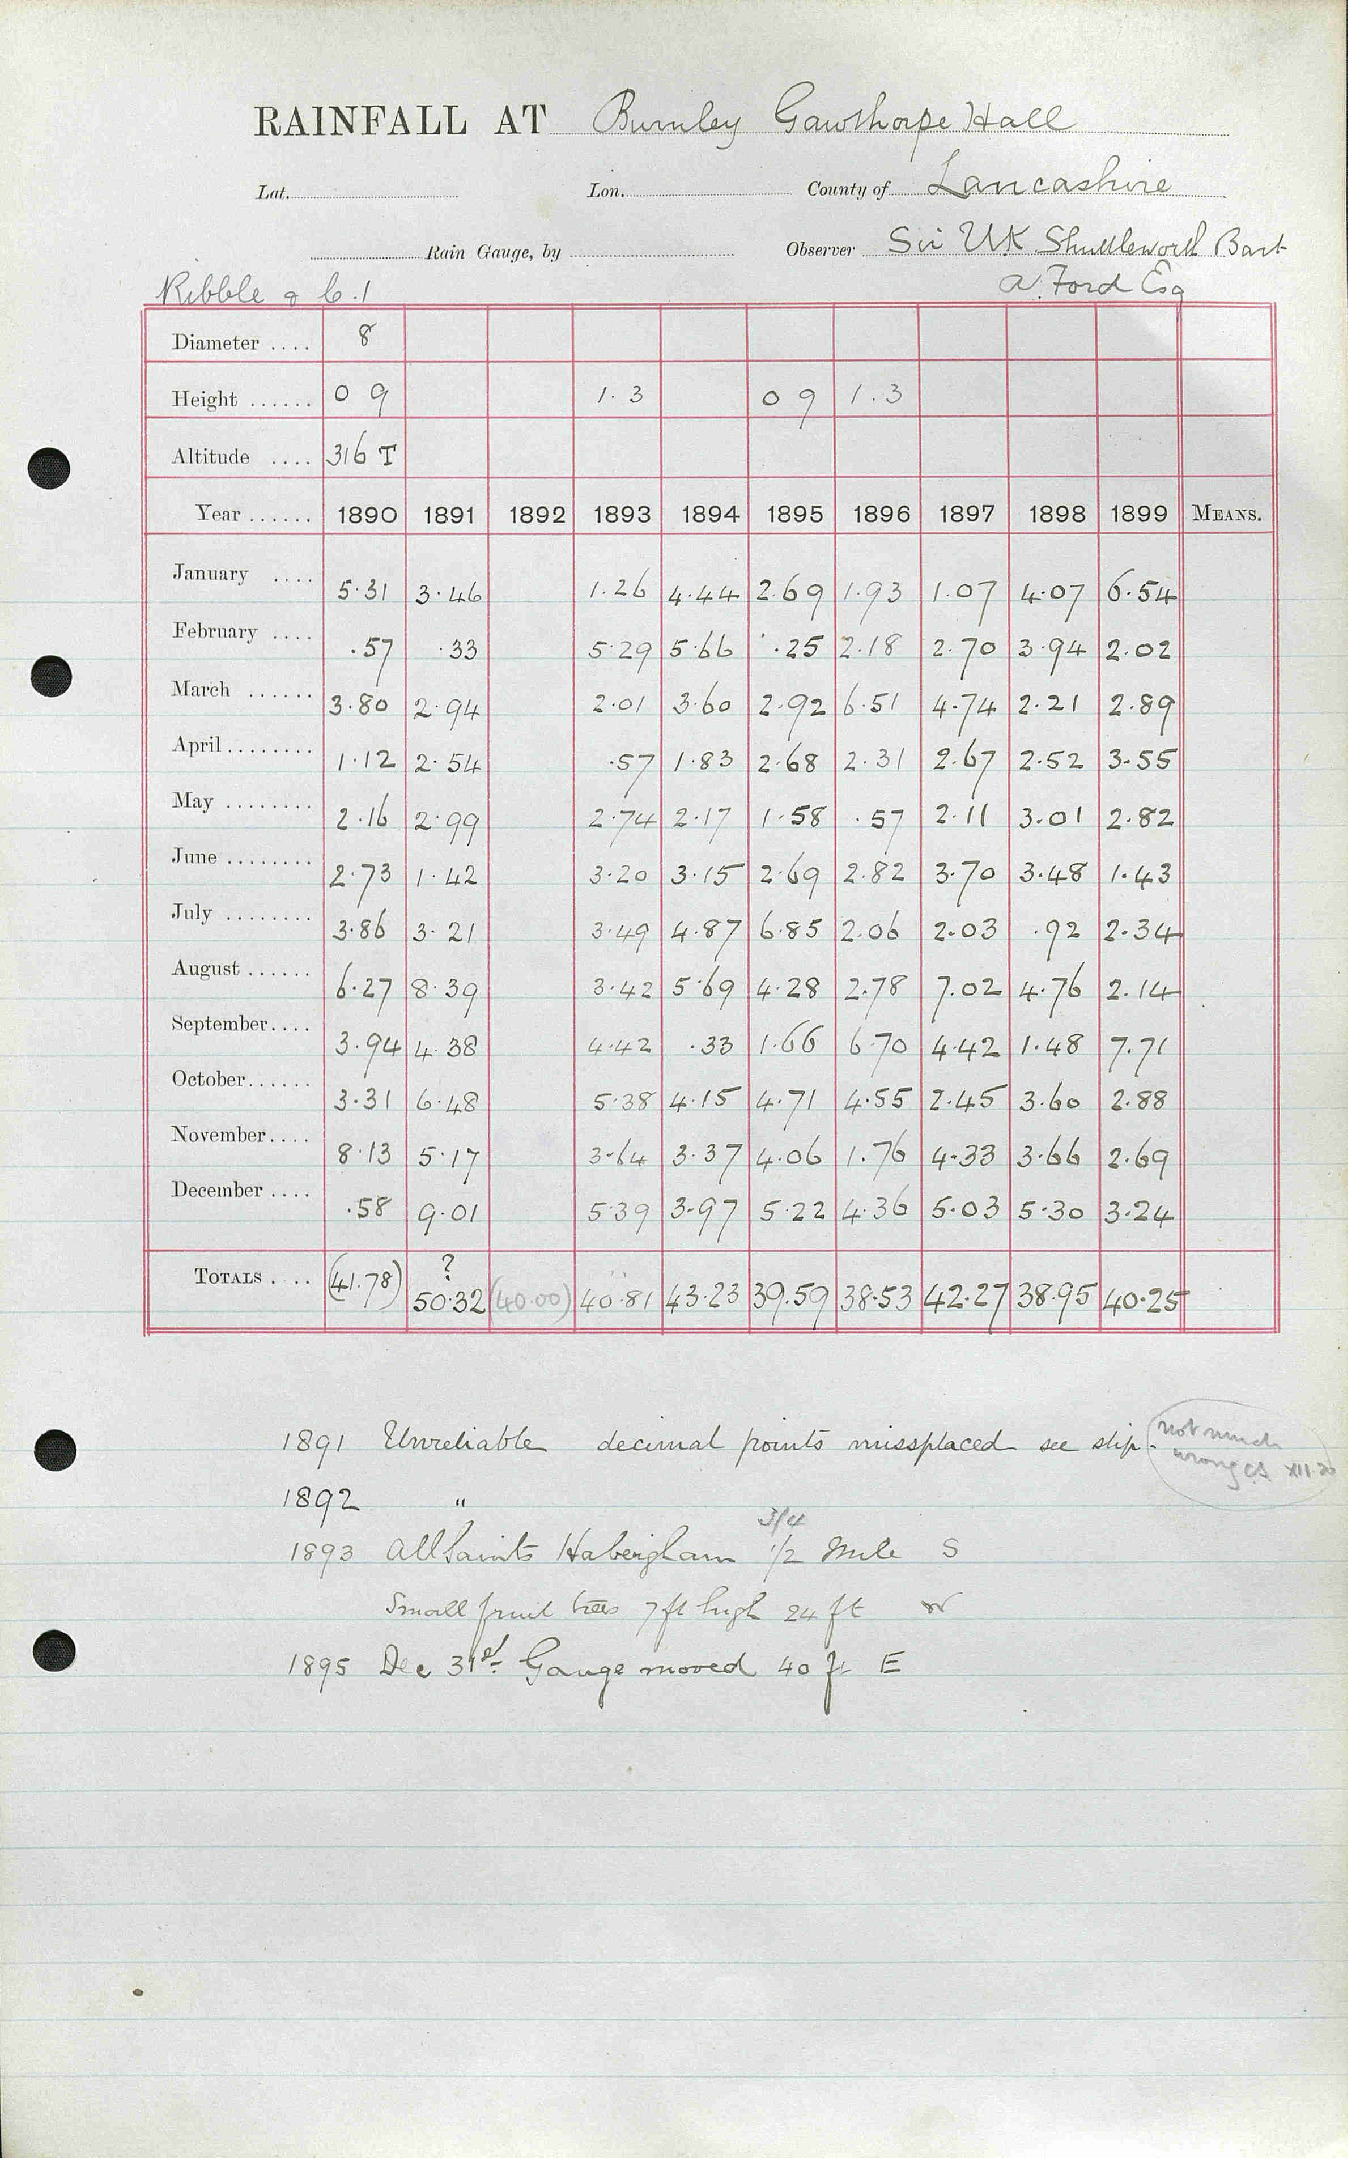 RAINFALL AT Burnley Gawthorpe Hall
Lat. Lon. County of Lancashire
Rain Gauge, by Observer Sir UK Shuttleworth Bart
Ribble & C. 1 A. Ford Esq
Diameter .... 8
Height ...... 0 9 1. 3 0 9 1. 3
Altitude .... 316 T
Year ...... 1890 1891 1892 1893 1894 1895 1896 1897 1898 1899 MEANS.
January .... 5.31 3.46 1.26 4.44 2.69 1.93 1.07 4.07 6.54
February .... .57 .33 5.29 5.66 .25 2.18 2.70 3.94 2.02
March ...... 3.80 2.94 2.01 3.60 2.92 6.51 4.74 2.21 2.89
April ........ 1.12 2.54 .57 1.83 2.68 2.31 2.67 2.52 3.55
May ........ 2.16 2.99 2.74 2.17 1.58 .57 2.11 3.01 2.82
June ........ 2.73 1.42 3.20 3.15 2.69 2.82 3.70 3.48 1.43
July ........ 3.86 3.21 3.49 4.87 6.85 2.06 2.03 .92 2.34
August ...... 6.27 8.39 3.42 5.69 4.28 2.78 7.02 4.76 2.14
September.... 3.94 4.38 4.42 .33 1.66 6.70 4.42 1.48 7.71
October...... 3.31 6.48 5.38 4.15 4.71 4.55 2.45 3.60 2.88
November.... 8.13 5.17 3.64 3.37 4.06 1.76 4.33 3.66 2.69
December .... .58 9.01 5.39 3.97 5.22 4.36 5.03 5.30 3.24
?
TOTALS .... (41.78) 50.32 (40.00) 40.81 43.23 39.59 38.53 42.27 38.95 40.25
1891 Unreliable decimal points missplaced see slip.
not much
wrong CS XII.20
1892 "
3/4
1893 All Saints Habergham 1/2 Mile S
Small fruit trees 7 ft high 24 ft W
1895 Dec 31st. Gauge moved 40 ft E